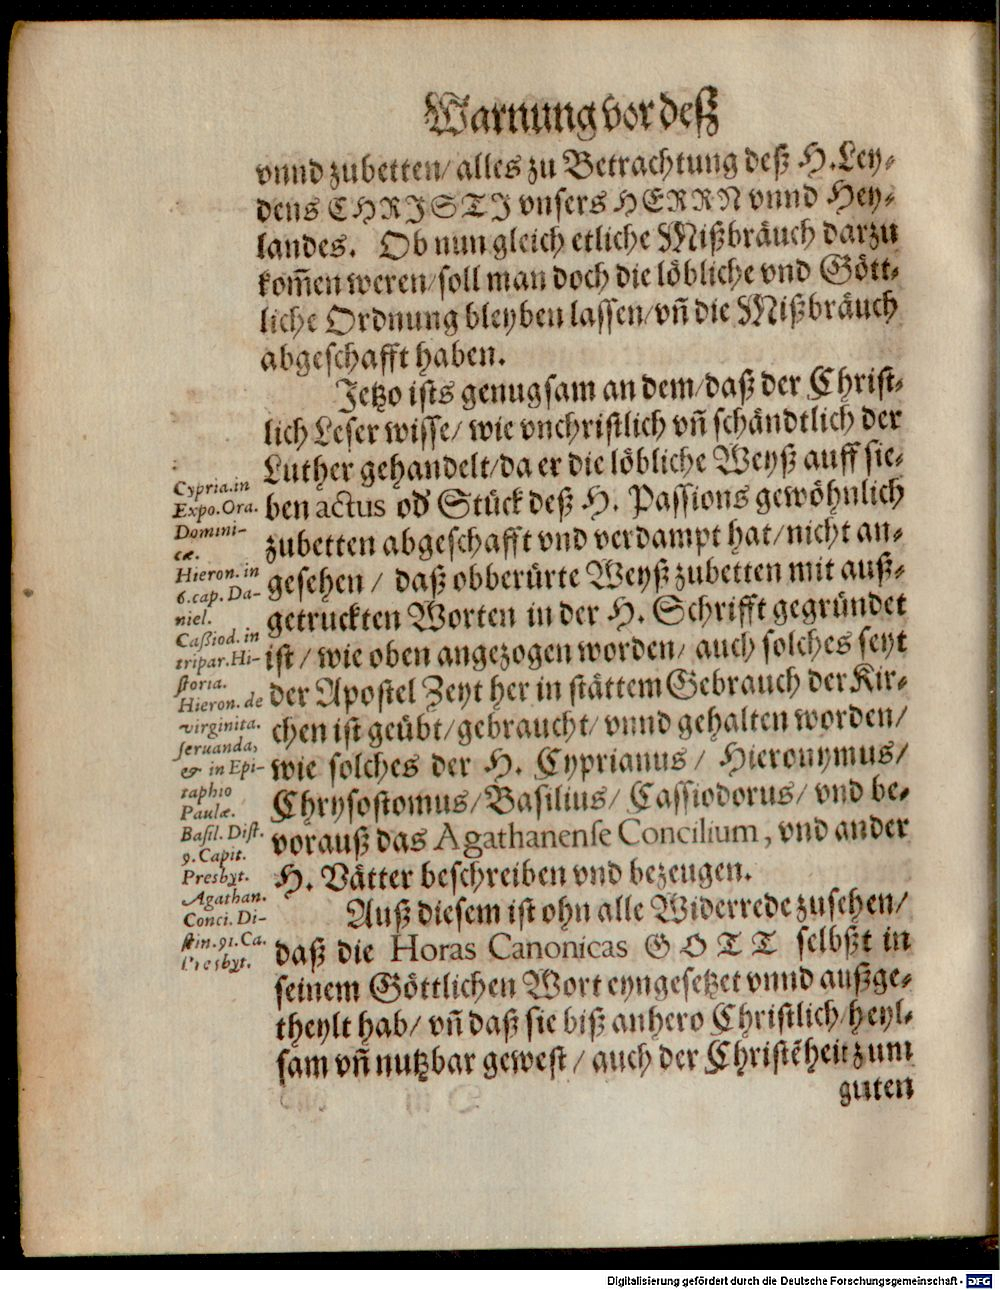 Warnung vor deß
vnnd zubetten/ alles zu Betrachtung deß H. Ley-
dens CHRISTI vnsers HERRN vnnd Hey-
landes. Ob nun gleich etliche Mißbräuch darzu
kom̃en weren/ soll man doch die löbliche vnd Gött-
liche Ordnung bleyben lassen/ vñ die Mißbräuch
abgeschafft haben.
Jetzo ists genugsam an dem/ daß der Christ-
lich Leser wisse/ wie vnchristlich vñ schändtlich der
Luther gehandelt/ da er die löbliche Weyß auff sie-
ben actus od' Stück deß H. Passions gewöhnlich
zubetten abgeschafft vnd verdampt hat/ nicht an-
gesehen/ daß obberürte Weyß zubetten mit auß-
getruckten Worten in der H. Schrifft gegründet
ist/ wie oben angezogen worden/ auch solches seyt
der Apostel Zeyt her in stättem Gebrauch der Kir-
chen ist geübt/ gebraucht/ vnnd gehalten worden/
wie solches der H. Cyprianus/ Hieronymus/
Chrysostomus/ Basilius/ Cassiodorus/ vnd be-
vorauß das Agathanense Concilium, vnd ander
H. Vätter beschreiben vnd bezeugen.
Auß diesem ist ohn alle Widerrede zusehen/
daß die Horas Canonicas GOTT selbßt in
seinem Göttlichen Wort eyngesetzet vnnd außge-
theylt hab/ vñ daß sie biß anhero Christlich/ heyl-
sam vñ nutzbar gewest/ auch der Christẽheit zum
guten
Cypria. in
Expo. Ora.
Domini-
cæ.
Hieron. in
6. cap. Da-
niel.
Caßiod. in
tripar. Hi-
storia.
Hieron. de
virginita.
seruanda,
& in Epi-
taphio
Paulæ.
Basil. Dist.
9. Capit.
Presbyt.
Agathan.
Conci. Di-
stin. 91. Ca.
Presbyt.
Digitalisierung gefördert durch die Deutsche Forschungsgemeinschaft - DFG